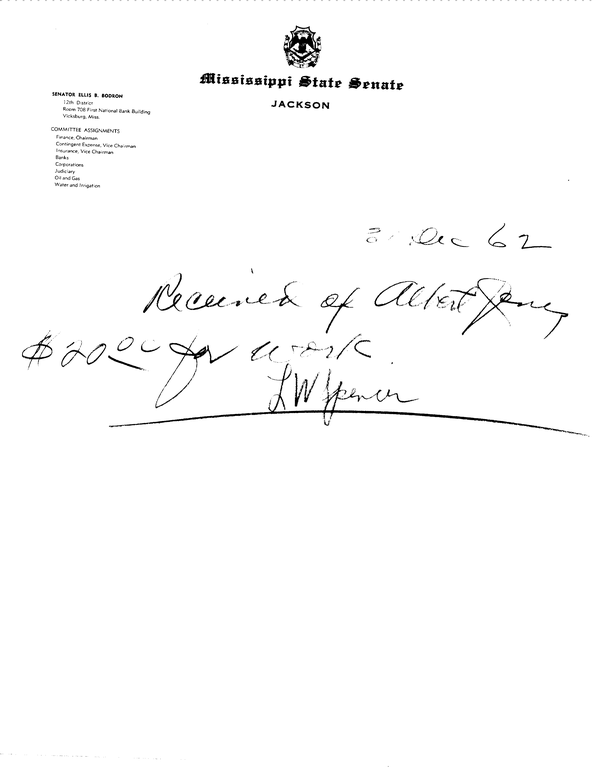 Mississippi State Senate
JACKSON
SENATOR ELLIS B. BODRON
12th District
Room 708 First National Bank Building
Vicksburg, Miss.
COMMITTEE ASSIGNMENTS
Finance, Chairman
Contingent Expense, Vice Chairman
Insurance, Vice Chairman
Banks
Corporations
Judiciary
Oil and Gas
Water and Irrigation
Dec 62
Received of Albert Jones
$20.00 for work
L W Spencer